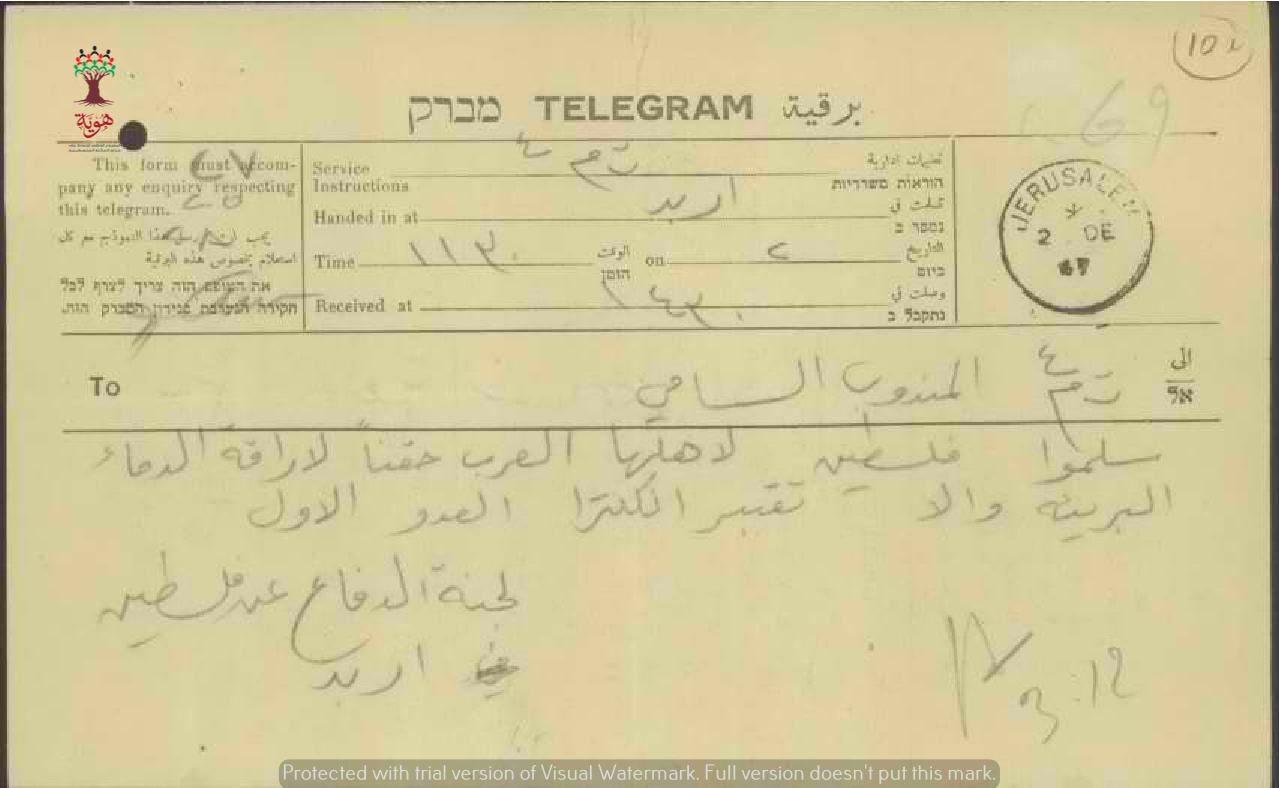 10
69
هوية
מברק TELEGRAM برقية
This form must accom-
pany any enquiry respecting
this telegram.
يجب ان يرسل هذا النموذج مع كل
استعلام بخصوص هذه البرقية
את הטופס הזה צריך לצרף לכל
חקירה הנוגעת בנידון המברק הזה.
Service
Instructions
تعليمات إدارية
הוראות משרדיות
Handed in at اربد تسلمت في
נמסר ב
Time ١١٣٠ الوقت
הזמן
on ٢ التاريخ
ביום
Received at ١٤٣٠ وصلت في
נתקבל ב
JERUSALEM
2 DE
47
To المندوب السامي الى
אל
سلموا فلسطين لاهلها العرب حقناً لاراقة الدماء
البريئة والا تعتبر انكلترا العدو الاول
لجنة الدفاع عن فلسطين
اربد
3.12
Protected with trial version of Visual Watermark. Full version doesn't put this mark.